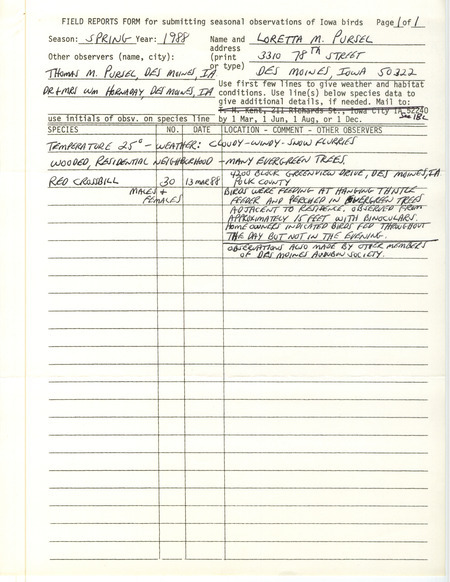 FIELD REPORTS FORM for submitting seasonal observations of Iowa birds Page 1 of 1
Season: SPRING Year: 1988 Name and LORETTA M. PURSEL
address
Other observers (name, city): (print 3310 78TH STREET
THOMAS M. PURSEL, DES MOINES, IA or type) DES MOINES, IOWA 50322
DR + MRS WM HORNADAY DES MOINES, IA Use first few lines to give weather and habitat
conditions. Use line(s) below species data to
give additional details, if needed. Mail to:
T. H. Kent, 211 Richards St., Iowa City IA 52240
use initials of obsv. on species line by 1 Mar, 1 Jun, 1 Aug, or 1 Dec.
SPECIES NO. DATE LOCATION - COMMENT - OTHER OBSERVERS
TEMPERATURE 25° - WEATHER: CLOUDY-WINDY-SNOW FLURRIES
WOODED, RESIDENTIAL NEIGHBORHOOD - MANY EVERGREEN TREES.
RED CROSSBILL 30 13 MAR 88 4200 BLOCK GREENVIEW DRIVE, DES MOINES, IA
POLK COUNTY
MALES + BIRDS WERE FEEDING AT HANGING THISTLE
FEMALES FEEDER AND PERCHED IN EVERGREEN TREES
ADJACENT TO RESIDENCE. OBSERVED FROM
APPROXIMATELY 15 FEET WITH BINOCULARS.
HOMEOWNERS INDICATED BIRDS FED THROUGHOUT
THE DAY BUT NOT IN THE EVENING.
OBSERVATIONS ALSO MADE BY OTHER MEMBERS
OF DES MOINES AUDUBON SOCIETY.